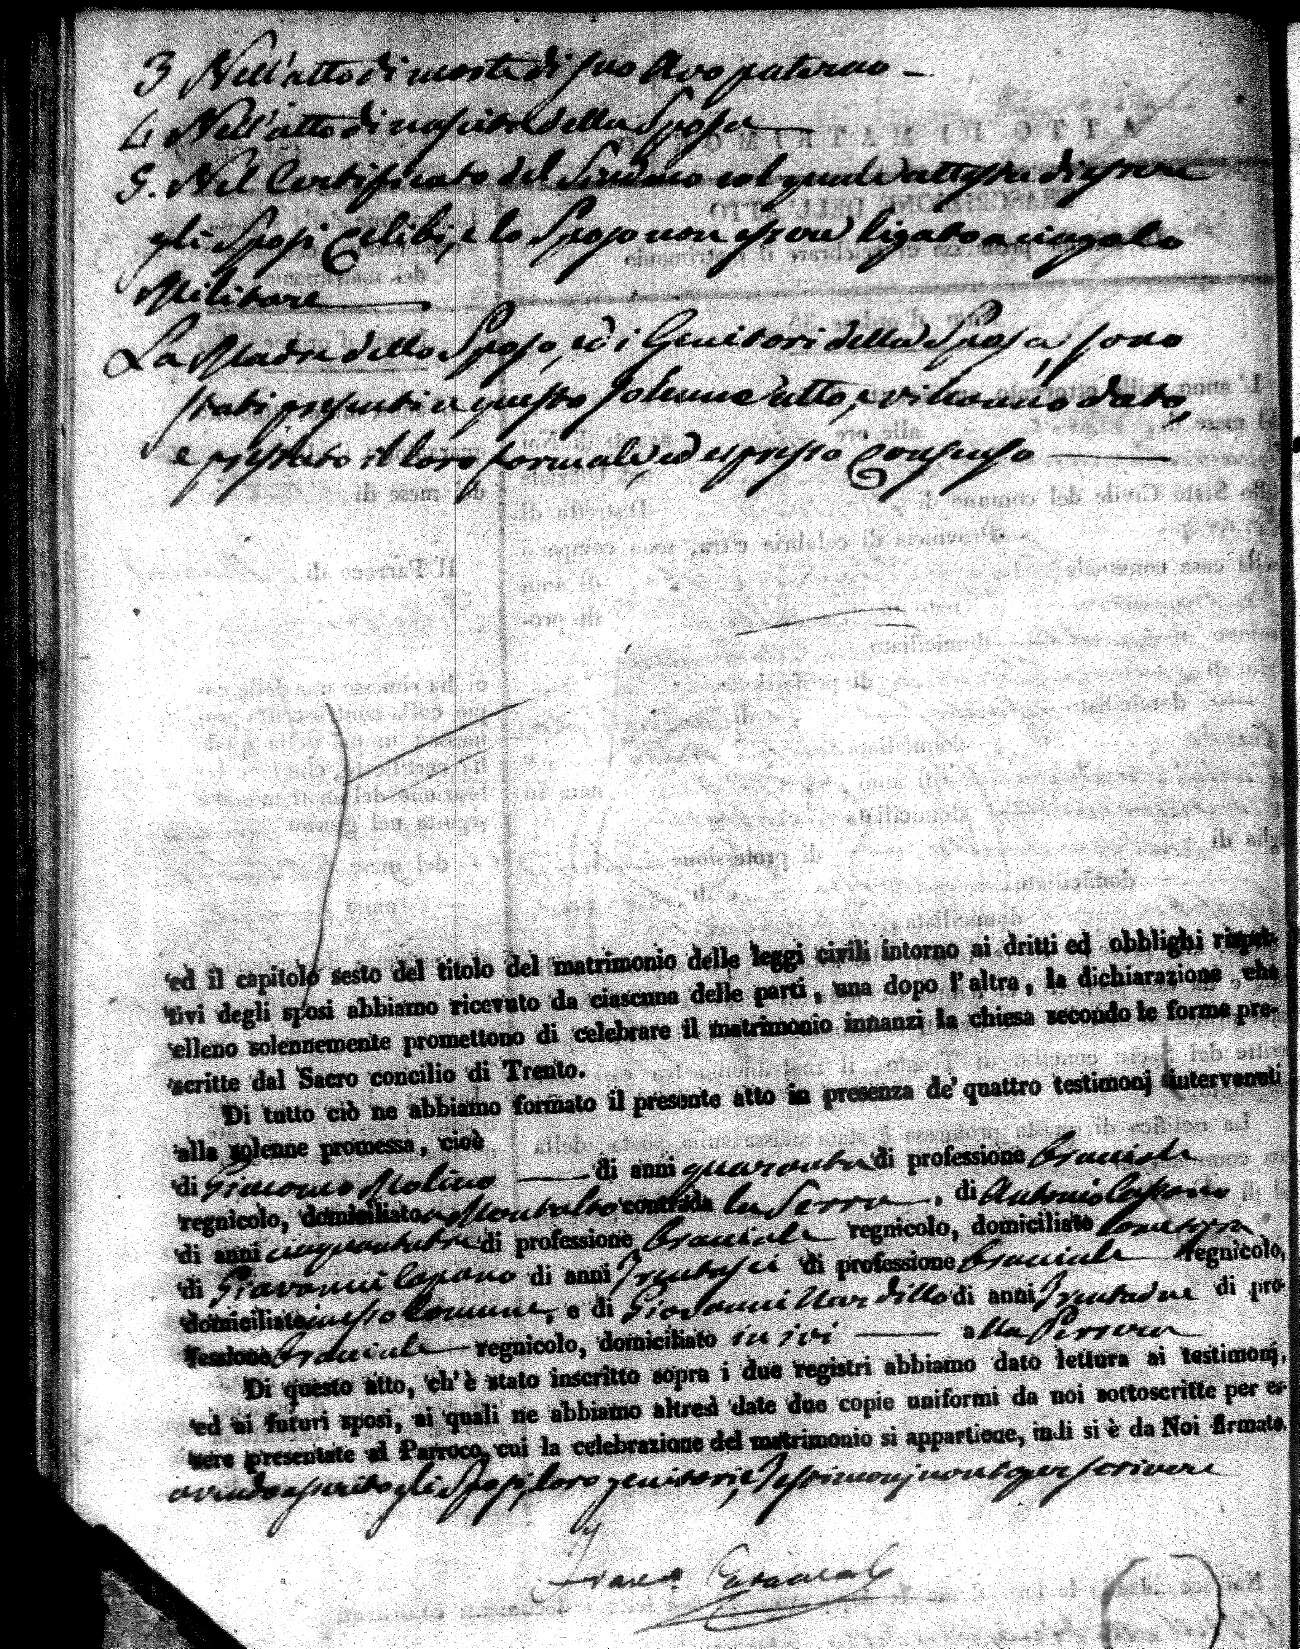 3 Nell'atto di morte di suo Avo paterno
4 Nell'atto di nascita della Sposa
5. Nel Certificato del Sindaco col quale attesta di essere
gli Sposi Celibi, e lo Sposo non essere ligato a cingolo
Militare
La Madre dello Sposo, ed i Genitori della Sposa, sono
stati presenti a questo solenne atto, e vi hanno dato,
e prestato il loro formale ed espresso Consenso
ed il capitolo sesto del titolo del matrimonio delle leggi civili intorno ai dritti ed obblighi rispet-
tivi degli sposi abbiamo ricevuto da ciascuna delle parti, una dopo l'altra, la dichiarazione, che
elleno solennemente promettono di celebrare il matrimonio innanzi la chiesa secondo le forme pre-
scritte dal Sacro concilio di Trento.
Di tutto ciò ne abbiamo formato il presente atto in presenza de' quattro testimonj intervenuti
alla solenne promessa, cioè
di Giacomo Molino di anni quaranta di professione bracciale
regnicolo, domiciliato a Montalto contrada la Serra, di Antonio Capano
di anni di professione bracciale regnicolo, domiciliato
di Giovanni Capano di anni trentasei di professione bracciale regnicolo,
domiciliato in esso Comune, e di Giovanni Nardillo di anni trentadue di pro-
fessione bracciale regnicolo, domiciliato in ivi alla
Di questo atto, ch'è stato inscritto sopra i due registri abbiamo dato lettura ai testimonj,
ed ai futuri sposi, ai quali ne abbiamo altresì date due copie uniformi da noi sottoscritte per es-
sere presentate al Parroco, cui la celebrazione del matrimonio si appartiene, indi si è da Noi firmato.
avendo asserito gli Sposi, loro genitori, e Testimonj non saper scrivere